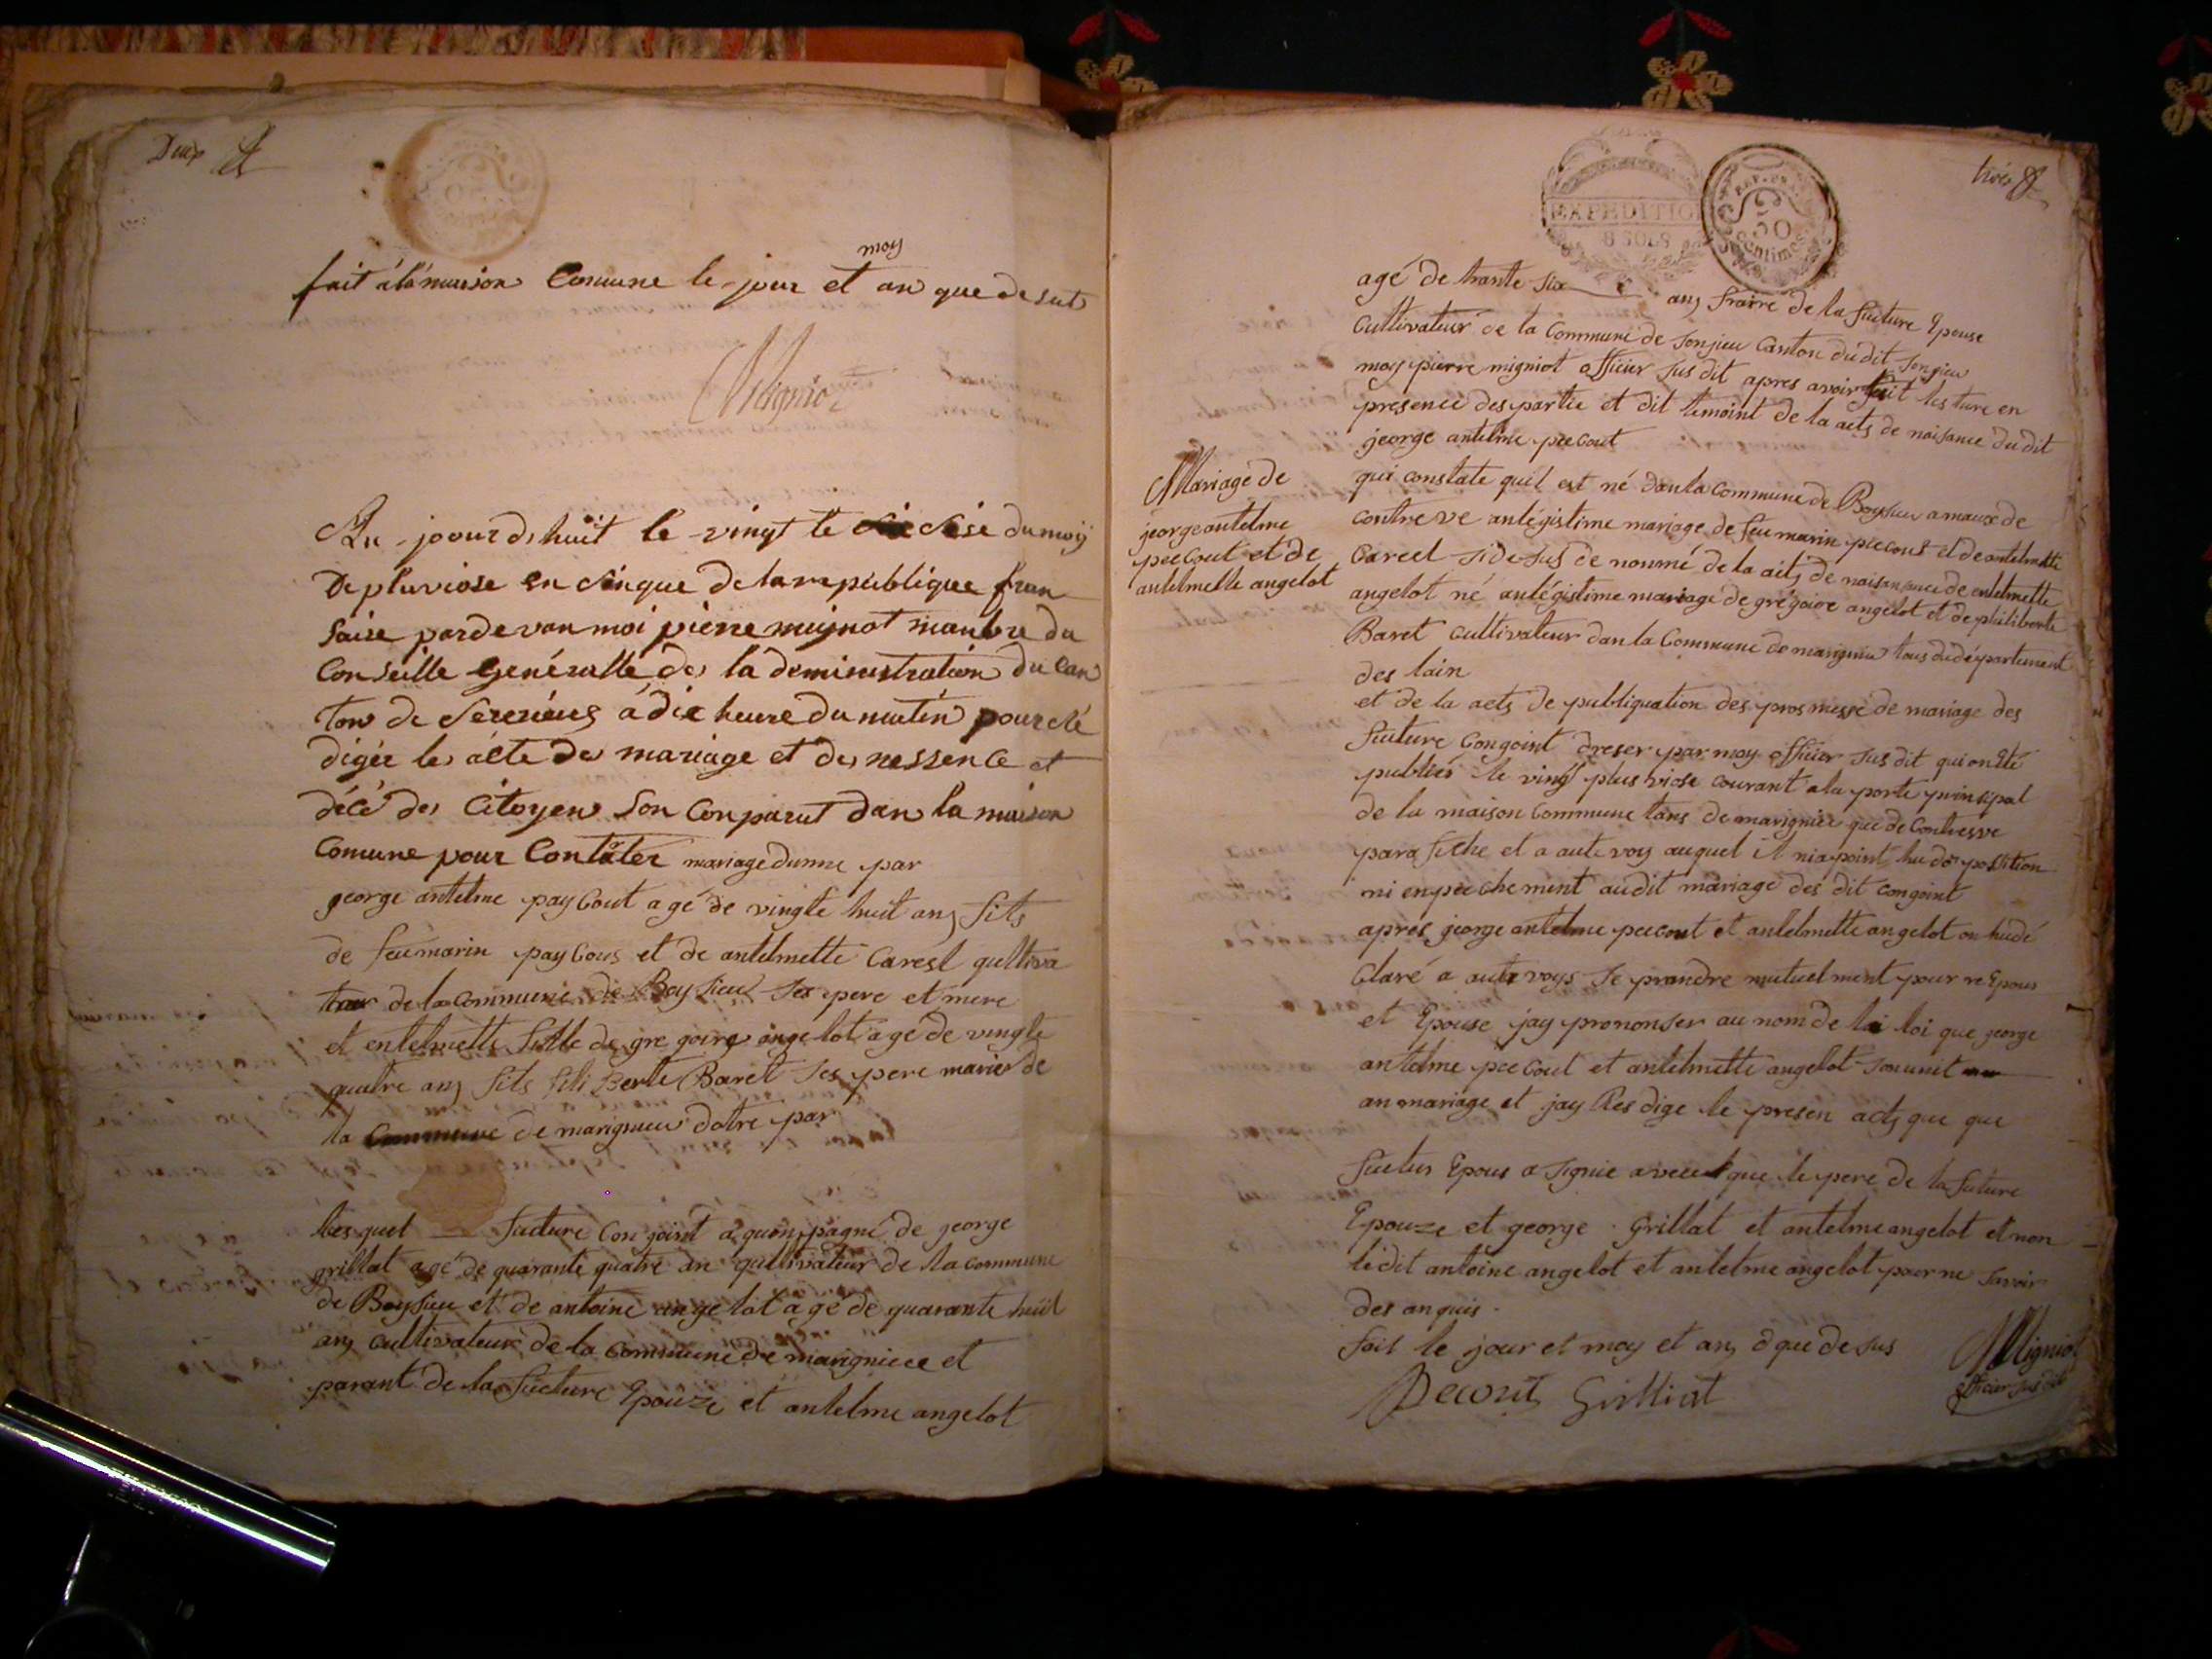 Deux
moy
fait à la maison Comune le jour et an que desut
Migniot
Au jourd huit le vingt te sise du moy
De pluviose en sinque de la republique fran
saise pardevan moi pierre mignot manbre du
Conseille Generalle de la deministration du can
ton de Seizerieus à dix heure du matin pour ré
digér les acte de mariage et de nessence et
décé des Citoyen Son Conparut dan la maison
Comune pour Contater mariage dunne par
george antelme paycout agé de vingte huit ans fits
de feu marin paycous et de antelmette Carest qultiva
teur de la commune de Boysieu ses pere et mere
et entelmette fille de gre goire angelot age de vingte
quatre ans fits fili Berte Baret ses pere marier de
la Commune de marignieu dotre par
lesquel future Congoint a quonpagné de george
grillat agé de quarante quatre an qultivateur de la commune
de Boysieu et de antoine angelot agé de quarante huit
ans cultivateur de la commune de marigniece et
parant de la fucture Epouze et antelme angelot
trois
EXPEDITION
8 SOLS
REP. FRA.
50
centimes
agé de trante six ans fraire de la fucture Epouse
cultivateur de la Commune de Sonjieu Canton dudit Sonjieu
moy pierre migniot officier sus dit apres avoir fait lecture en
presence des partie et dit temoint de la acts de naisance du dit
george antelme peecout
Mariage de
george antelme
peecout et de
antelmette angelot
qui constate quil est né dan la commune de Boysieu amaux de
contreve anlégistime mariage de feu marin peecout et de antelmette
Careel si de sus de nommé de la acts de naisansance de entelmette
angelot né anlégistime mariage de grégoire angelot et de philiberte
Baret cultivateur dan la Commune de marignieu tous du département
des lain
et de la acts de publiquation des prosmesse de mariage des
fucture Congoint dreser par moy officier sus dit qui on Eté
publiés le vingt plus viose courant a la porte prinsipal
de la maison Commune tans de marigniee que de Contresve
para fiche et a aute voy auquel il nia point hu doposition
ni enpeechement audit mariage des dit congoint
apres george antelme peecout et antelmette angelot on hu dé
Claré a aute voys Se prandre mutuelment pour re Epous
et Epouse jay prononser au nom de la loi que george
antelme peecout et antelmette angelot son unit
an mariage et jay Resdige le presen acts que que
fuctur Epous a signie aveecque le pere de la future
Epouze et george Grillat et antelme angelot et non
ledit antoine angelot et antelme angelot paorne savoir
des anquis
fait le jour et moy et ans d que de sus
Pecout Grilliat
Migniot
officier sus dit